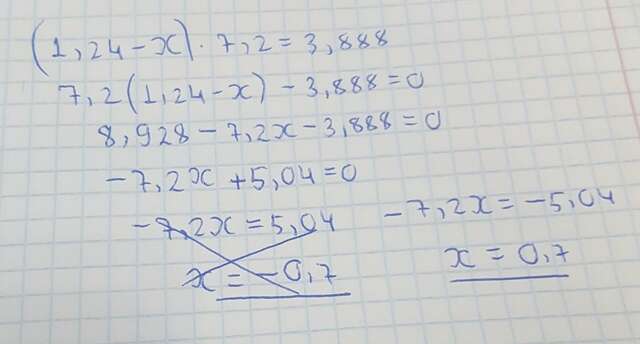 (1,24-x).7,2=3,888
7,2(1,24-x)-3,888=0
8,928-7,2x-3,888=0
-7,2x+5,04=0
-7,2x=5,04
x=-0,7
-7,2x=-5,04
x=0,7